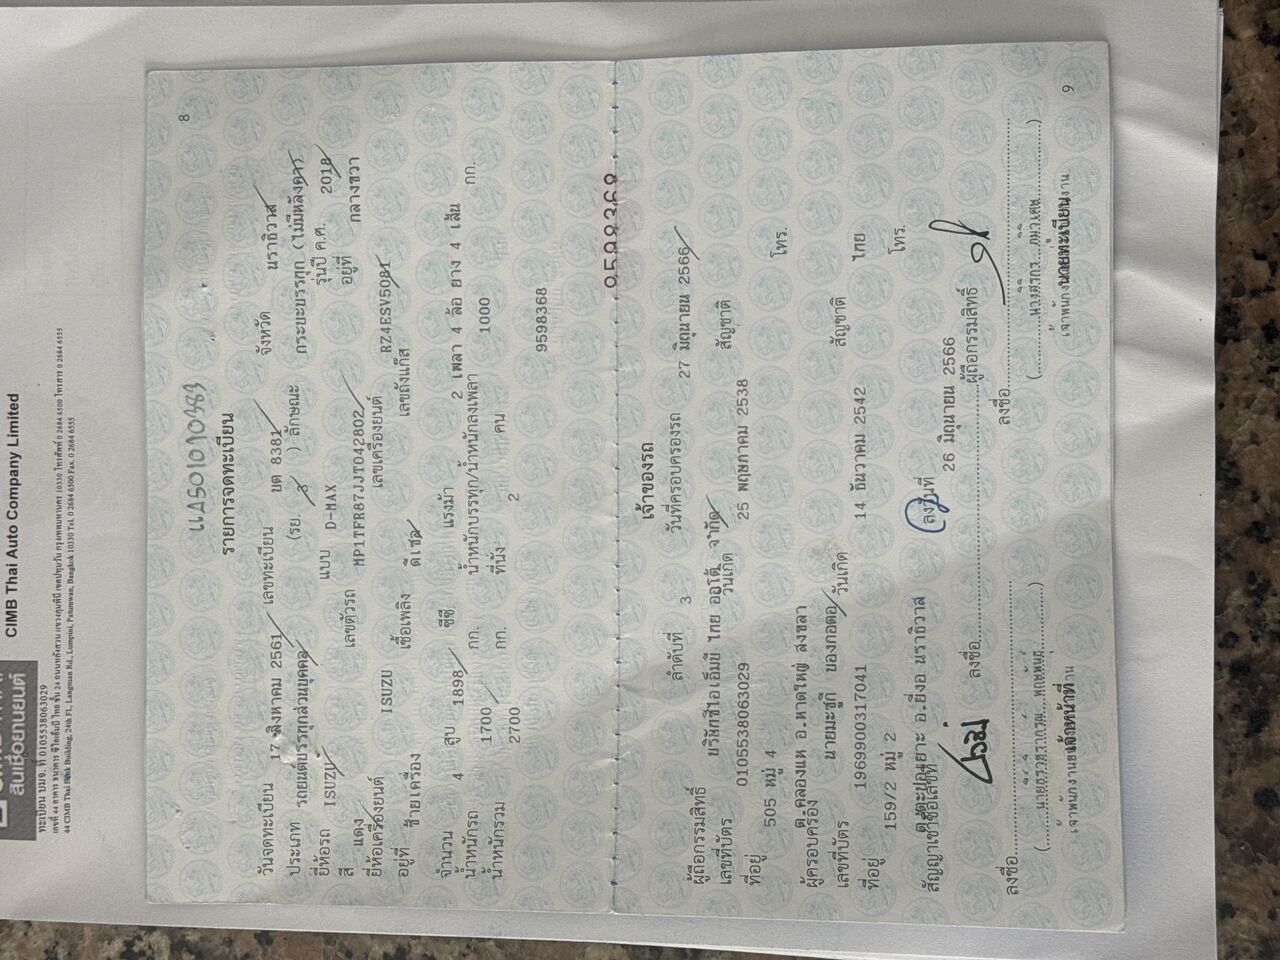 CIMB Thai Auto Company Limited
สินเชื่อรถยนต์
ทะเบียน บมจ. ที่ 0105538063029
เลขที่ 44 อาคาร ธนาคาร ซีไอเอ็มบี ไทย ชั้น 24 ถนนหลังสวน แขวงลุมพินี เขตปทุมวัน กรุงเทพมหานคร 10330 โทรศัพท์ 0 2684 6500 โทรสาร 0 2684 6555
44 CIMB Thai Bank Building, 24th Fl., Langsuan Rd., Lumpini, Patumwan, Bangkok 10330 Tel. 0 2684 6500 Fax. 0 2684 6555
8
แดง5010190383
รายการจดทะเบียน
วันจดทะเบียน 17 สิงหาคม 2561 เลขทะเบียน บต 8381 จังหวัด นราธิวาส
ประเภท รถยนต์บรรทุกส่วนบุคคล (รย. 3 ) ลักษณะ กระบะบรรทุก (ไม่มีหลังคา)
ยี่ห้อรถ ISUZU แบบ D-MAX รุ่นปี ค.ศ. 2018
สี แดง เลขตัวรถ MP1TFR87JJT042802 อยู่ที่ กลางขวา
ยี่ห้อเครื่องยนต์ ISUZU เลขเครื่องยนต์ RZ4ESV5081
อยู่ที่ ซ้ายเครื่อง เชื้อเพลิง ดีเซล เลขถังแก๊ส
จำนวน 4 สูบ 1898 ซีซี แรงม้า 2 เพลา 4 ล้อ ยาง 4 เส้น
น้ำหนักรถ 1700 กก. น้ำหนักบรรทุก/น้ำหนักลงเพลา 1000 กก.
น้ำหนักรวม 2700 กก. ที่นั่ง 2 คน
9598368
0598368
เจ้าของรถ
ลำดับที่ 3 วันที่ครอบครองรถ 27 มิถุนายน 2566
ผู้ถือกรรมสิทธิ์ บริษัทซีไอเอ็มบี ไทย ออโต้ จำกัด
เลขที่บัตร 0105538063029 วันเกิด 25 พฤษภาคม 2538 สัญชาติ
ที่อยู่ 505 หมู่ 4 โทร.
ต.คลองแห อ.หาดใหญ่ สงขลา
ผู้ครอบครอง นายมะซูกี ยองกอตอ
เลขที่บัตร 1969900317041 วันเกิด 14 ธันวาคม 2542 สัญชาติ ไทย
ที่อยู่ 159/2 หมู่ 2 โทร.
ต.ตะปอเยาะ อ.ยี่งอ นราธิวาส
สัญญาเช่าซื้อเลขที่ ลงวันที่ 26 มิถุนายน 2566
ลงชื่อ ผู้ถือกรรมสิทธิ์
ลงชื่อ ลงชื่อ
เจ้าหน้าที่ นายทะเบียน
9